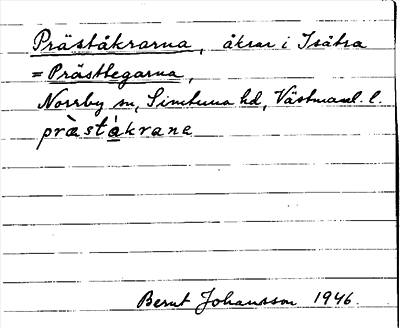 Präståkrarna, åkrar i Isätra
= Prästtegarna,
Norrby sn, Simtuna hd, Västmanl. l.
prästákrane
Bernt Johansson 1946.